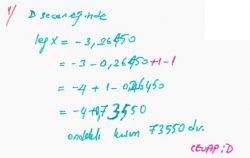 4) D seçeneğinde
log X = -3,26450
= -3 - 0,26450 +1-1
= -4 + 1 - 0,26450
= -4 + 0,73550
ondalıklı kısım 73550 dır.
CEVAP: D